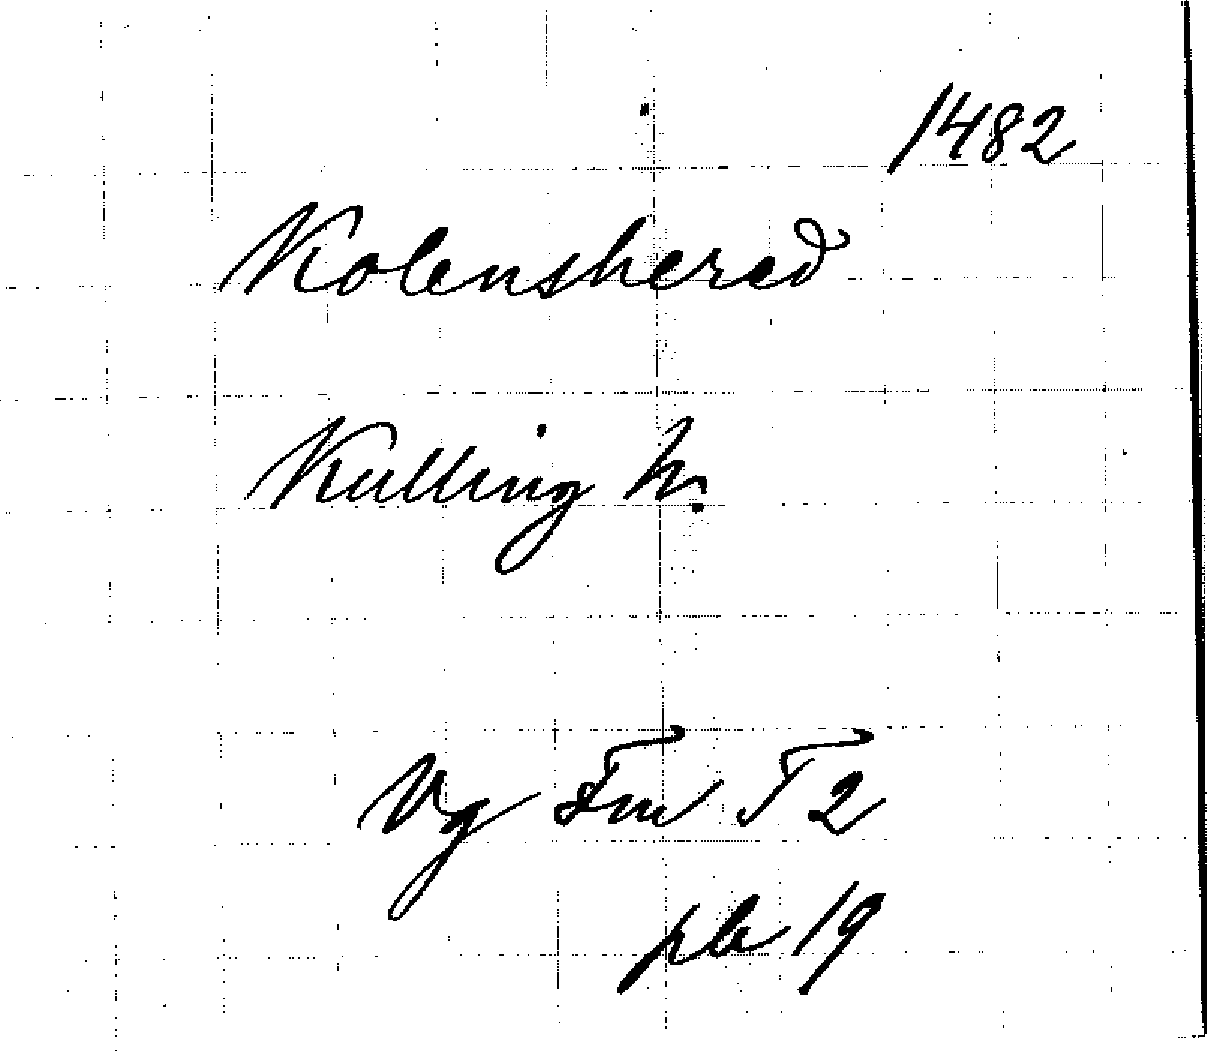 1482
Kolenshered
Kulling h.
Vg Fm T2
pb 19